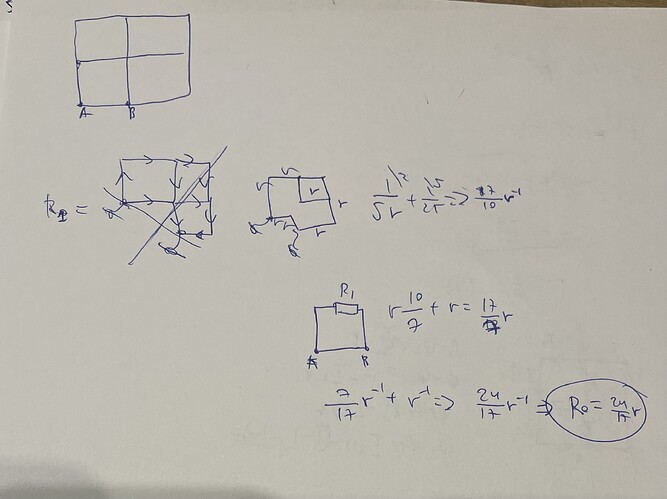 A B
R₁ =
r r r r r r
1/5r + 1/2r => 7/10 r⁻¹
R₁
r 10/7 + r = 17/7 r
A B
7/17 r⁻¹ + r⁻¹ => 24/17 r⁻¹ => R₀ = 24/17 r